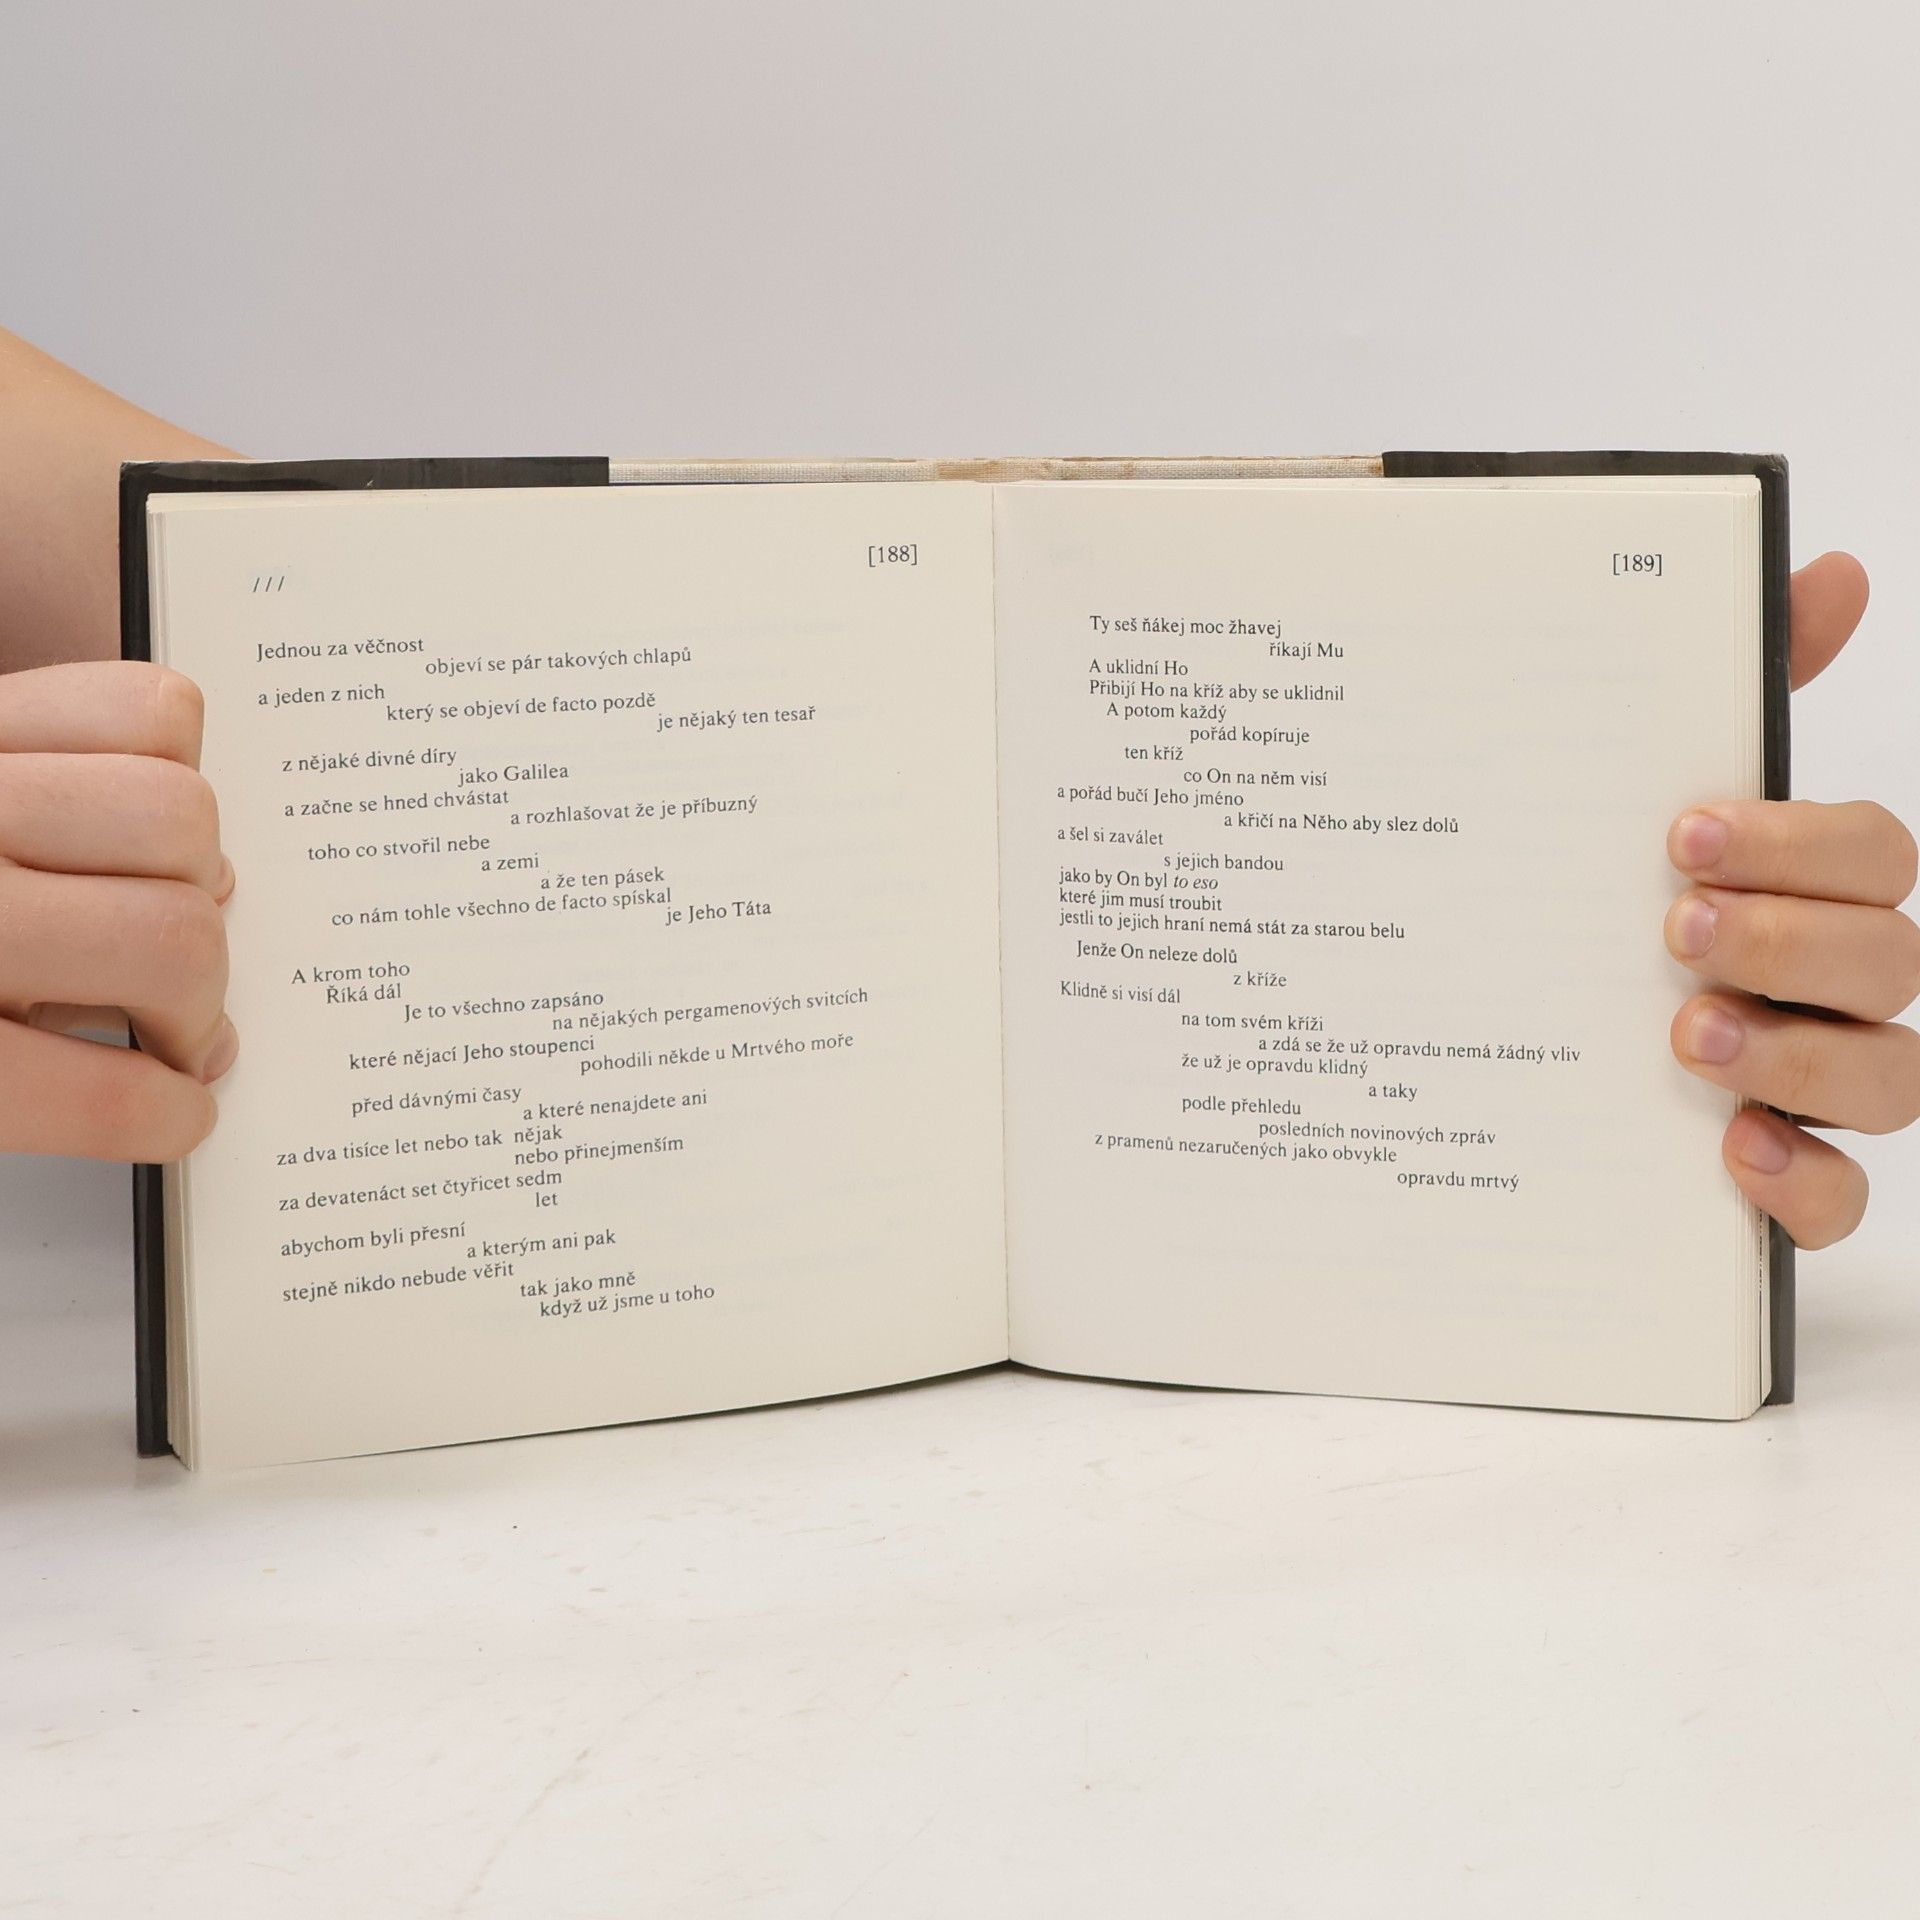 [188]
///
Jednou za věčnost
objeví se pár takových chlapů
a jeden z nich
který se objeví de facto pozdě
je nějaký ten tesař
z nějaké divné díry
jako Galilea
a začne se hned chvástat
a rozhlašovat že je příbuzný
toho co stvořil nebe
a zemi
a že ten pásek
co nám tohle všechno de facto spískal
je Jeho Táta
A krom toho
Říká dál
Je to všechno zapsáno
na nějakých pergamenových svitcích
které nějací Jeho stoupenci
pohodili někde u Mrtvého moře
před dávnými časy
a které nenajdete ani
za dva tisíce let nebo tak nějak
nebo přinejmenším
za devatenáct set čtyřicet sedm
let
abychom byli přesní
a kterým ani pak
stejně nikdo nebude věřit
tak jako mně
když už jsme u toho
[189]
Ty seš ňákej moc žhavej
říkají Mu
A uklidní Ho
Přibijí Ho na kříž aby se uklidnil
A potom každý
pořád kopíruje
ten kříž
co On na něm visí
a pořád bučí Jeho jméno
a křičí na Něho aby slez dolů
a šel si zaválet
s jejich bandou
jako by On byl to eso
které jim musí troubit
jestli to jejich hraní nemá stát za starou belu
Jenže On neleze dolů
z kříže
Klidně si visí dál
na tom svém kříži
a zdá se že už opravdu nemá žádný vliv
že už je opravdu klidný
a taky
podle přehledu
posledních novinových zpráv
z pramenů nezaručených jako obvykle
opravdu mrtvý